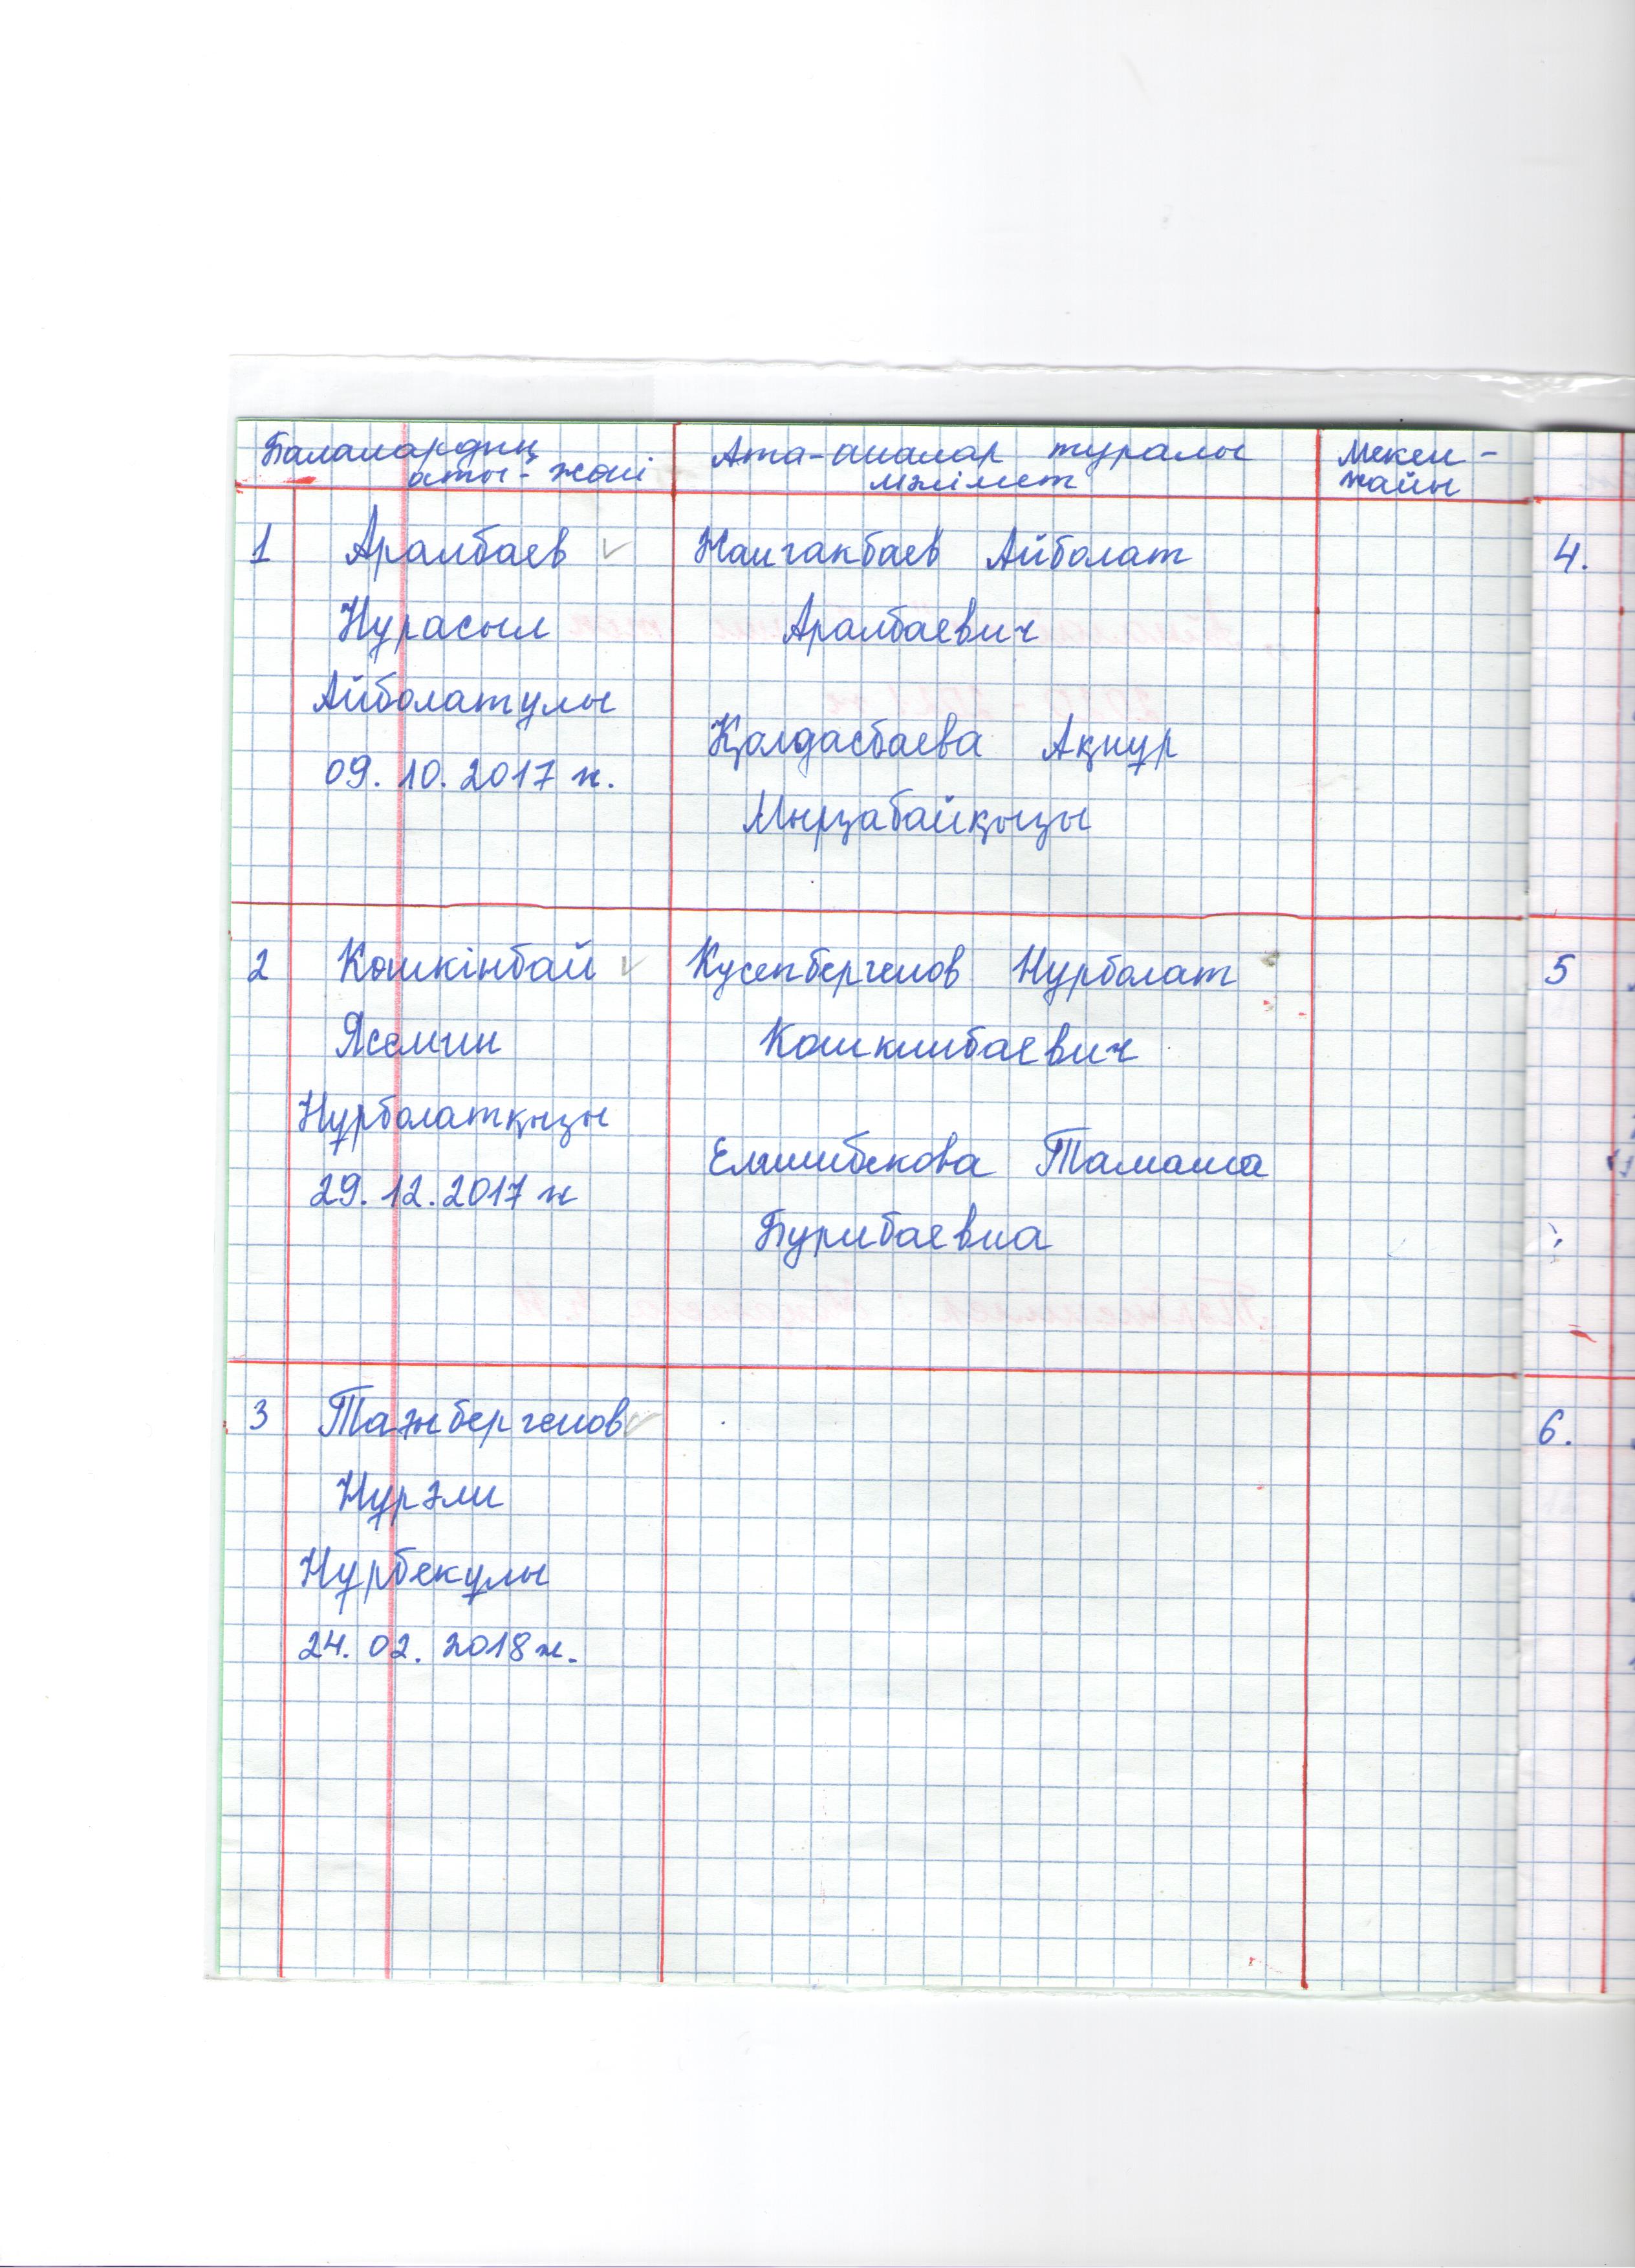 Балалардың Ата-аналар туралы Мекен-
аты-жөні мәлімет жайы
1 Аралбаев Жангакбаев Айболат 4.
Нұрасыл Аралбаевич
Айболатұлы
Қолдасбаева Ақнұр
09.10.2017 ж.
Мырзабайқызы
2 Көшкінбай Кусепбергенов Нурболат 5
Ясемин Кошкинбаевич
Нұрболатқызы
Елшибекова Тамаша
29.12.2017 ж
Бурибаевна
3 Тажбергенов 6.
Нұрәли
Нұрбекұлы
24.02.2018 ж.